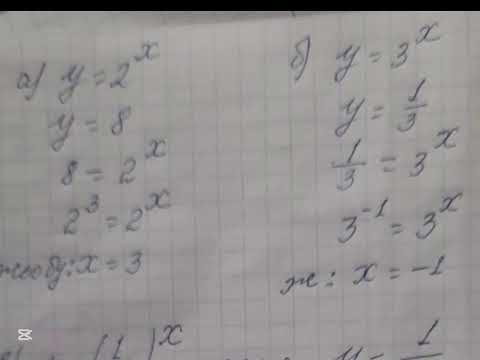 а) y = 2^x
y = 8
8 = 2^x
2^3 = 2^x
x = 3
б) y = 3^x
y = 1/3
1/3 = 3^x
3^-1 = 3^x
ж: x = -1